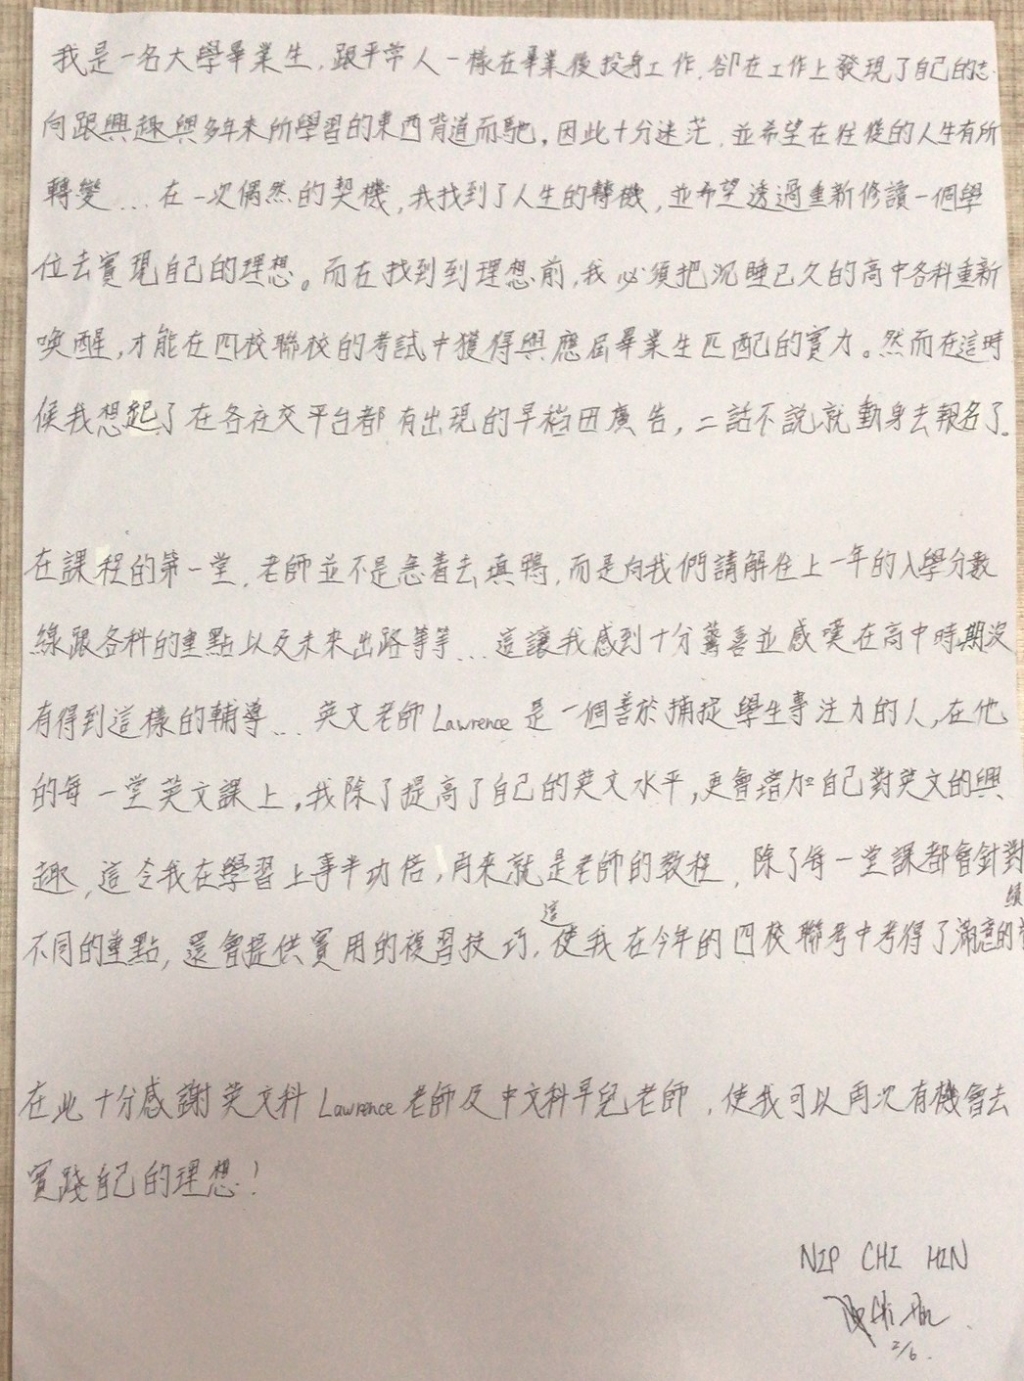 我是一名大學畢業生，跟平常人一樣在畢業後投身工作，卻在工作上發現了自己的志
向跟興趣與多年來所學習的東西背道而馳，因此十分迷茫，並希望在往後的人生有所
轉變...在一次偶然的契機，我找到了人生的轉機，並希望透過重新修讀一個學
位去實現自己的理想。而在找到到理想前，我必須把沉睡已久的高中各科重新
喚醒，才能在四校聯校的考試中獲得與應屆畢業生匹配的實力。然而在這時
候我想起了在各社交平台都有出現的早稻田廣告，二話不說就動身去報名了。
在課程的第一堂，老師並不是急着去填鴨，而是向我們講解往上一年的入學分數
線跟各科的重點以及未來出路等等...這讓我感到十分驚喜並感嘆在高中時期沒
有得到這樣的輔導...英文老師Lawrence是一個善於捕捉學生專注力的人，在他
的每一堂英文課上，我除了提高了自己的英文水平，更會增加自己對英文的興
趣，這令我在學習上事半功倍，再來就是老師的教程，除了每一堂課都會針對
不同的重點，還會提供實用的複習技巧，這使我在今年的四校聯考中考得了滿意的
績
在此十分感謝英文科Lawrence老師及中文科早兒老師，使我可以再次有機會去
實踐自己的理想！
NIP CHI HIN
2/6.